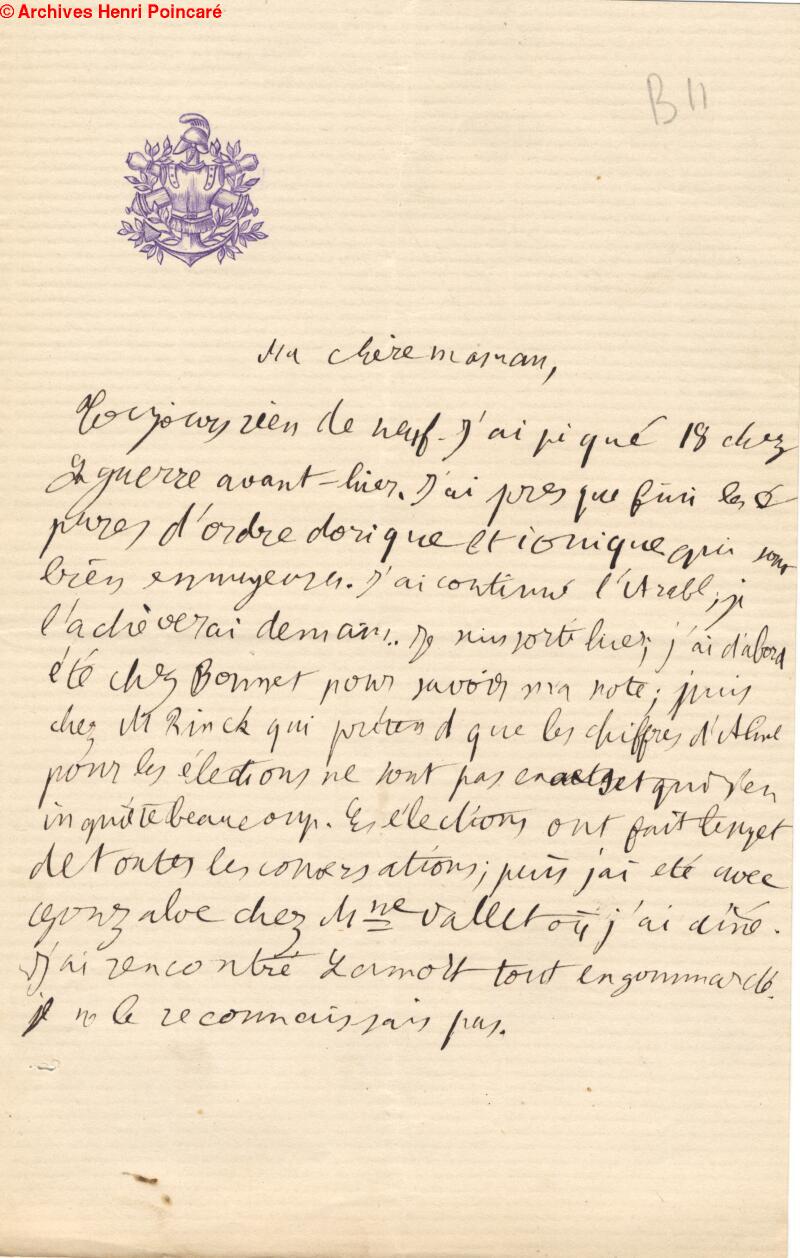 © Archives Henri Poincaré
B 11
Ma chère maman,
Toujours rien de neuf. J'ai piqué 18 chez
Laguerre avant-hier. J'ai presque fini les é
pures d'ordre dorique et ionique qui sont
bien ennuyeuses. J'ai continué l'Arabl; je
l'achèverai demain. Je suis sorti hier; j'ai d'abord
été chez Bonnet pour savoir ma note; puis
chez M Rinck qui prétend que les chiffres d'Aline
pour les élections ne sont pas exacts et qui s'en
inquiète beaucoup. Les élections ont fait le sujet
de toutes les conversations; puis j'ai été avec
Gonzalve chez Mme Vallet où j'ai dîné.
J'ai rencontré tout engommardé.
je ne le reconnaissais pas.